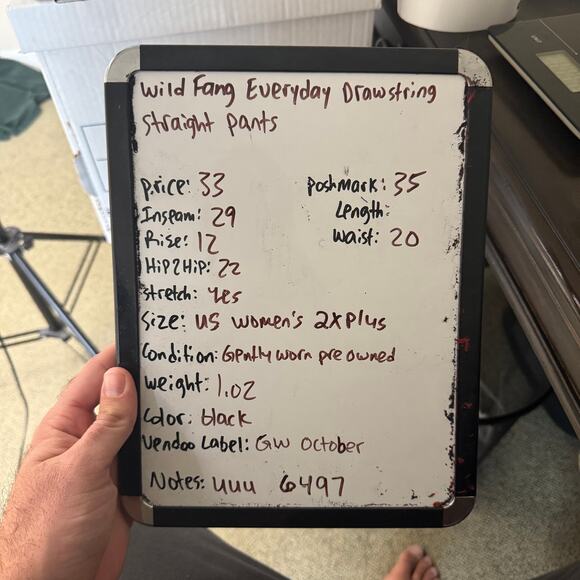 Wild Fang Everyday Drawstring
straight pants
price: 33
Poshmark: 35
Inseam: 29
Length:
Rise: 12
Waist: 20
Hip 2 Hip: 22
stretch: yes
Size: US women's 2X Plus
Condition: Gently worn pre owned
weight: 1.02
Color: black
Vendoo Label: GW October
Notes: uuu 6497